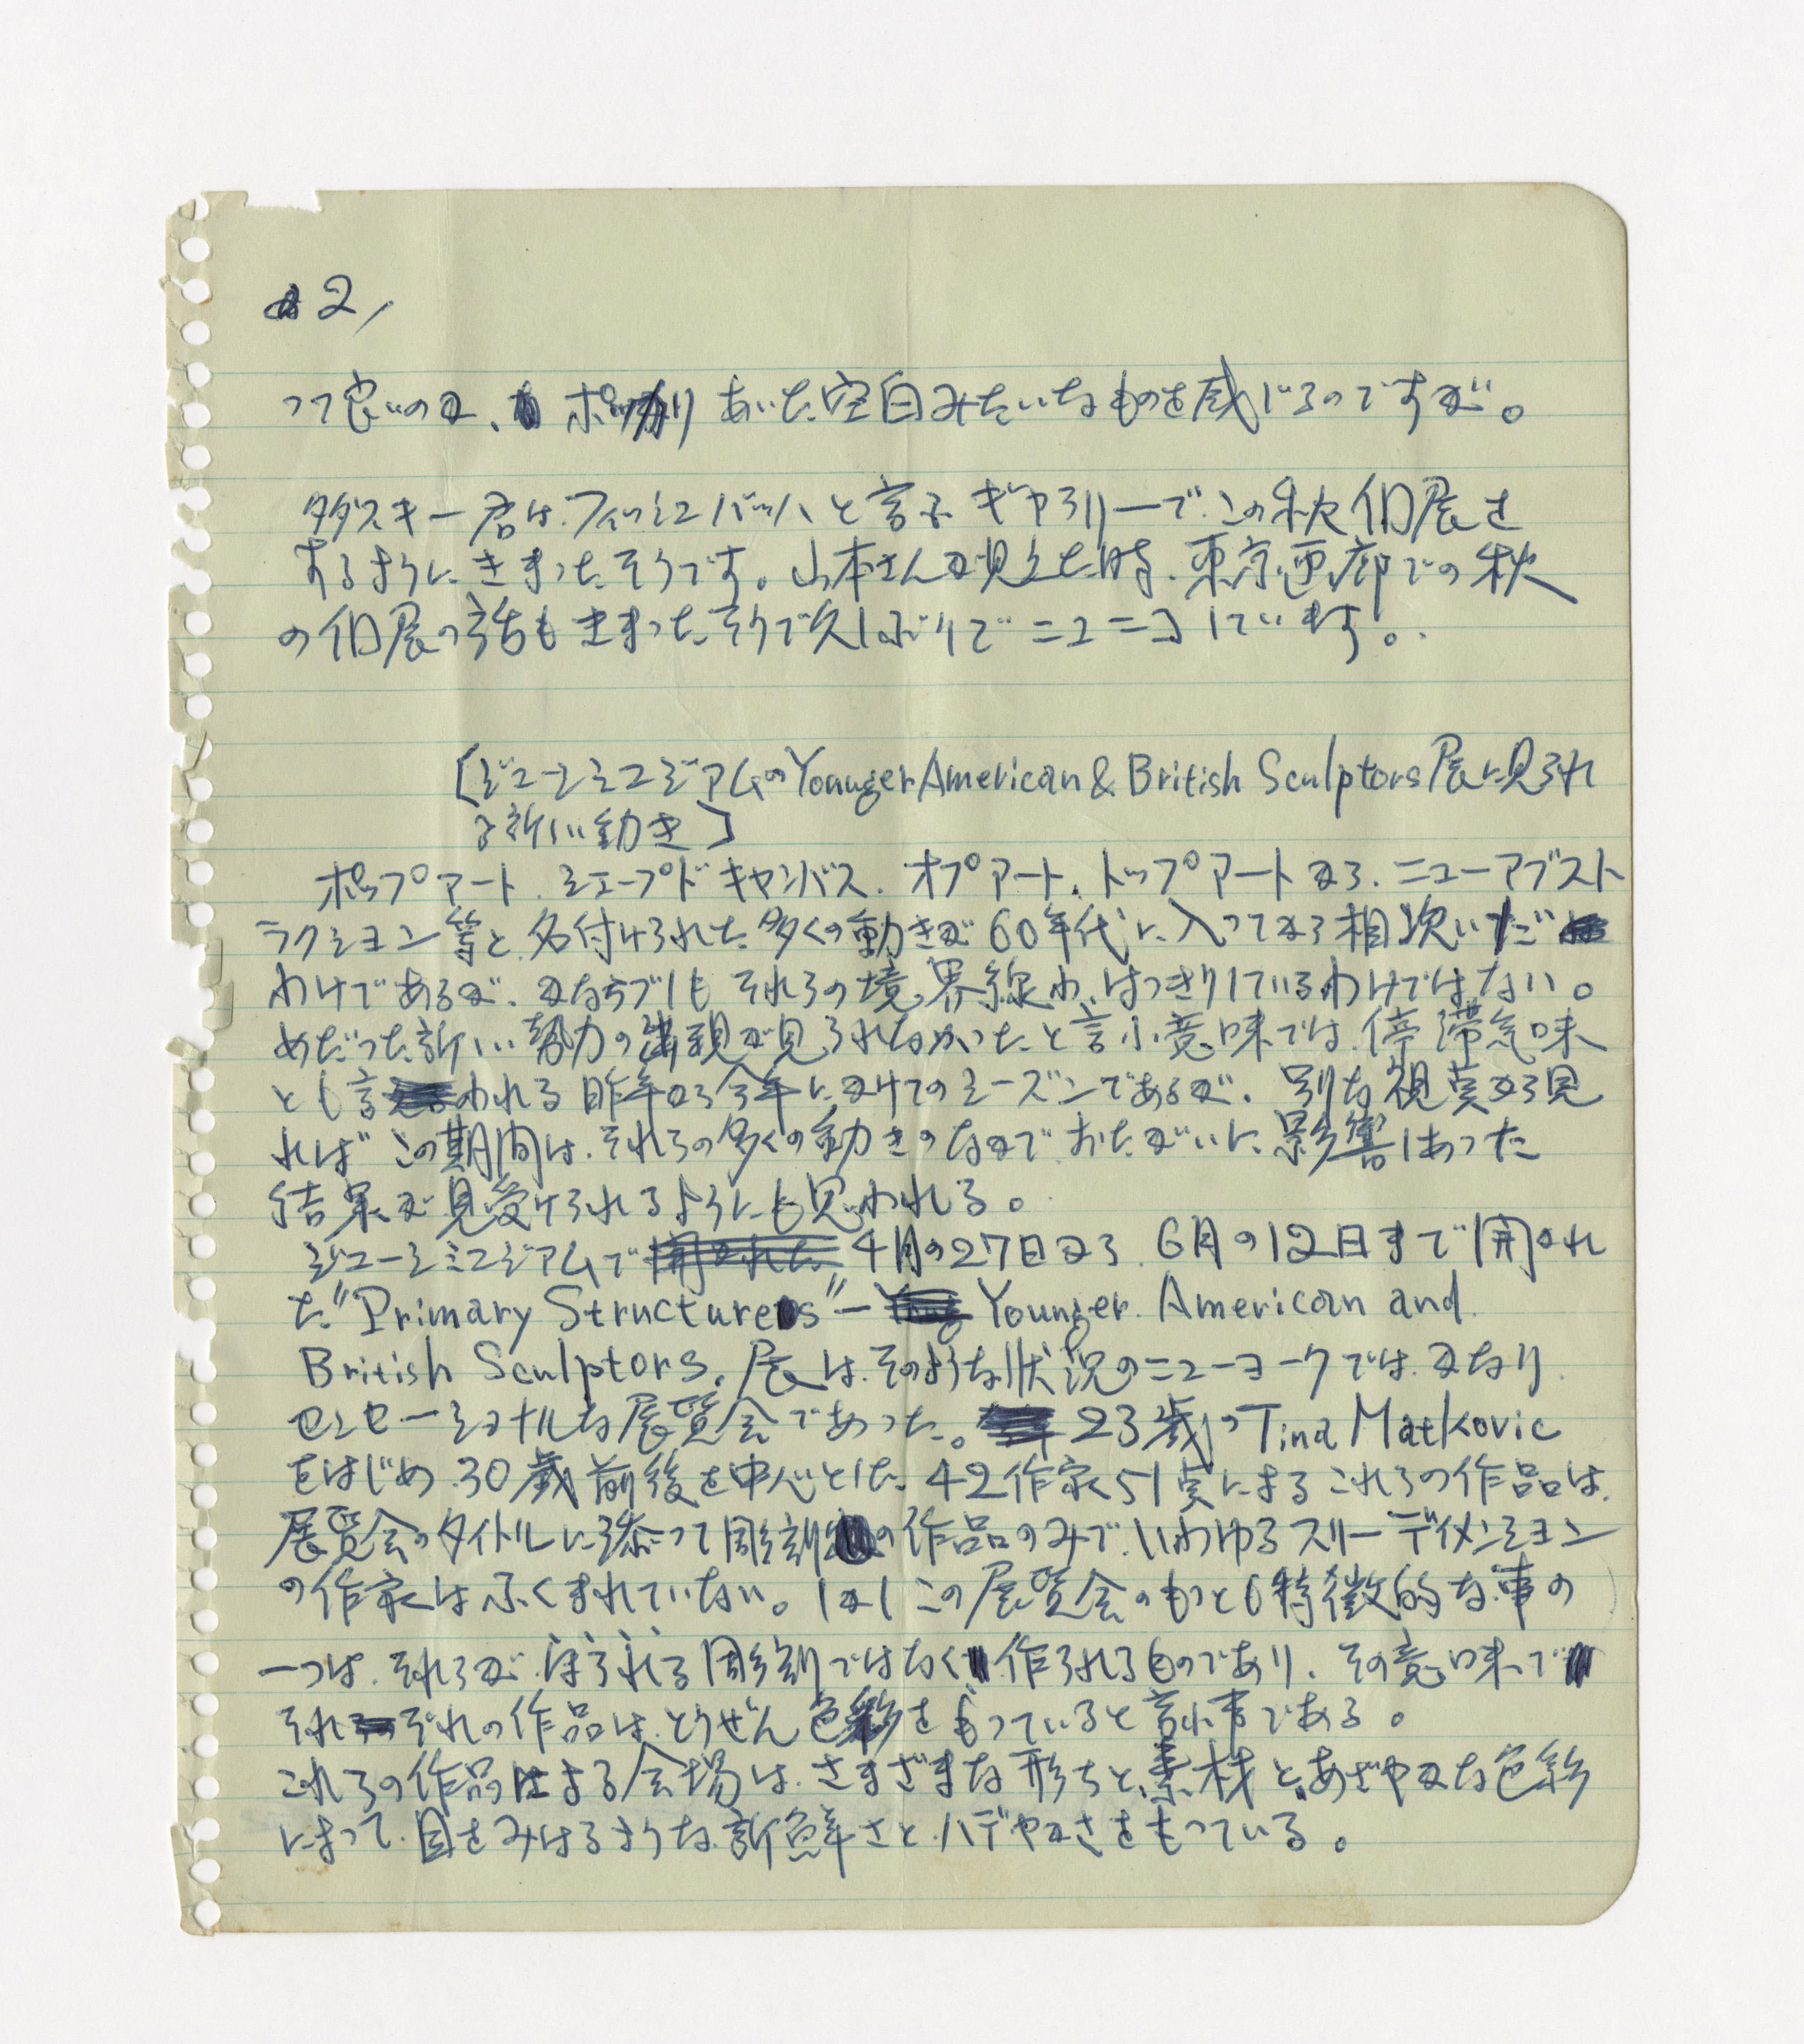 2,
って良いのか、ポッカリあいた空白みたいなものを感じるのですが。
タダスキー君は、フィッシュバッハと言ふギャラリーで、この秋個展を
するようにきまったそうです。山本さんが見えた時、東京画廊での秋
の個展の話もきまったそうで久しぶりでニコニコしています。
[ジューシミュジアムのYounger American & British Sculptors展に見られ
る新しい動き]
ポップアート、シェープドキャンバス、オプアート、トップアートから、ニューアブスト
ラクション等と名付けられた多くの動きが60年代に入ってから相次いだ
わけであるが、かならずしもそれらの境界線が、はっきりしているわけではない。
めだった新しい勢力の出現が見られなかったと言ふ意味では、停滞気味
とも言われる昨年から今年にかけてのシーズンであるが、別な視点から見
ればこの期間は、それらの多くの動きのなかで、おたがいに影響しあった
結果が見受けられるようにも思われる。
ジューシミュジアムで 4月の27日から、6月の12日まで開かれ
た"Primary Structures"— Younger American and
British Sculptors. 展は、そのような状況のニューヨークでは、かなり
センセーショナルな展覧会であった。23歳のTina Matkovic
をはじめ、30歳前後を中心とした、42作家51点によるこれらの作品は、
展覧会のタイトルに添って彫刻の作品のみで、いわゆるスリーディメンション
の作家はふくまれていない。しかしこの展覧会のもっとも特徴的な事の
一つは、それらが、ほられる彫刻ではなく作られるものであり、その意味で
それぞれの作品は、とうぜん色彩をもっていると言ふ事である。
これらの作品による会場は、さまざまな形ちと、素材と、あざやかな色彩
によって、目をみはるような新鮮さと、ハデヤカさをもっている。